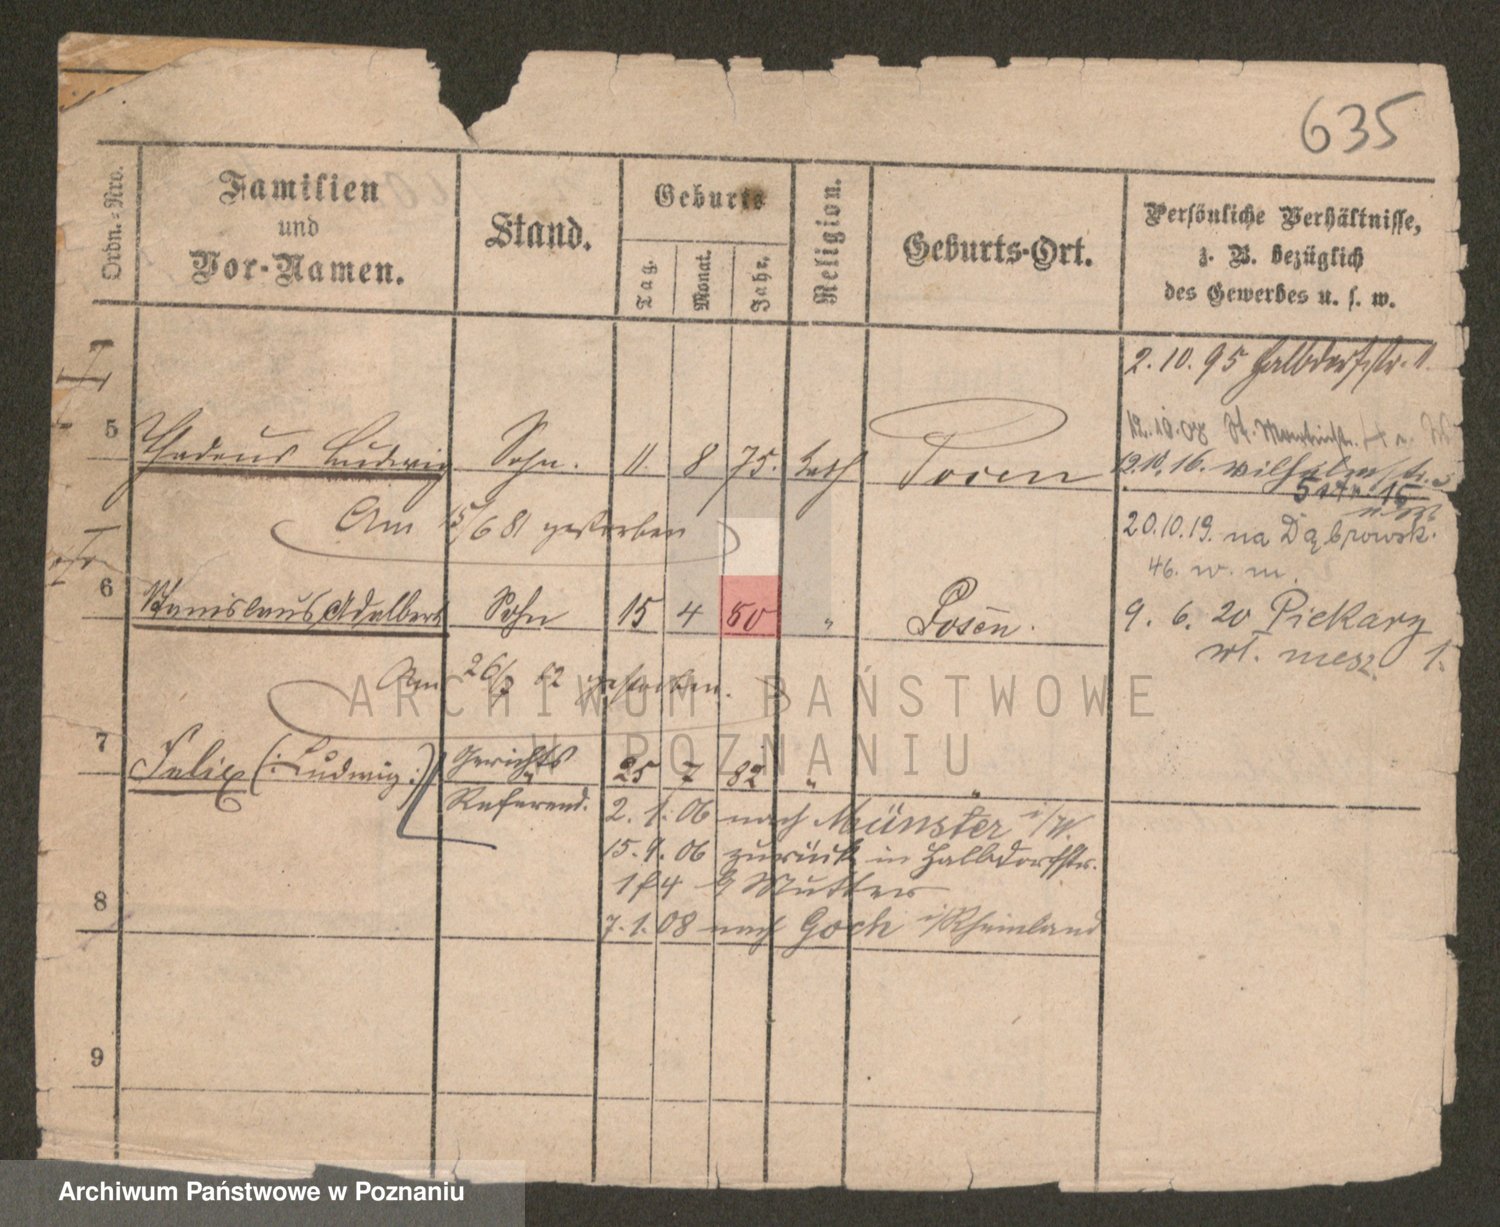 635
Ordn.-Nro.
Familien
und
Vor-Namen.
Stand.
Geburts
Tag.
Monat.
Jahr.
Religion.
Geburts-Ort.
Persönliche Verhältnisse,
z. B. bezüglich
des Gewerbes u. s. w.
2.10.95 Halbdorfstr.
5 Thadeus Ludwig Sohn. 11. 8 75. kath Posen
12.10.08 St. Martinstr.
19.10.16. Wilhelmstr.
Am 15/6 81 gestorben
20.10.19. na Dąbrowsk.
46. w. m.
6 Stanislaus Adalbert Sohn 15 4 80 " Posen.
9. 6. 20 Piekary
wł. miesz. 1.
Am 26/3 82 gestorben.
7 Felix (: Ludwig :) Gerichts 25 7 82 " "
Referend.
2. 1. 06 nach Münster i/W.
15. 9. 06 zurück in Halbdorfstr.
Mutter
7. 1. 08 nach Goch i/Rheinland
8
9
ARCHIWUM PAŃSTWOWE
W POZNANIU
Archiwum Państwowe w Poznaniu